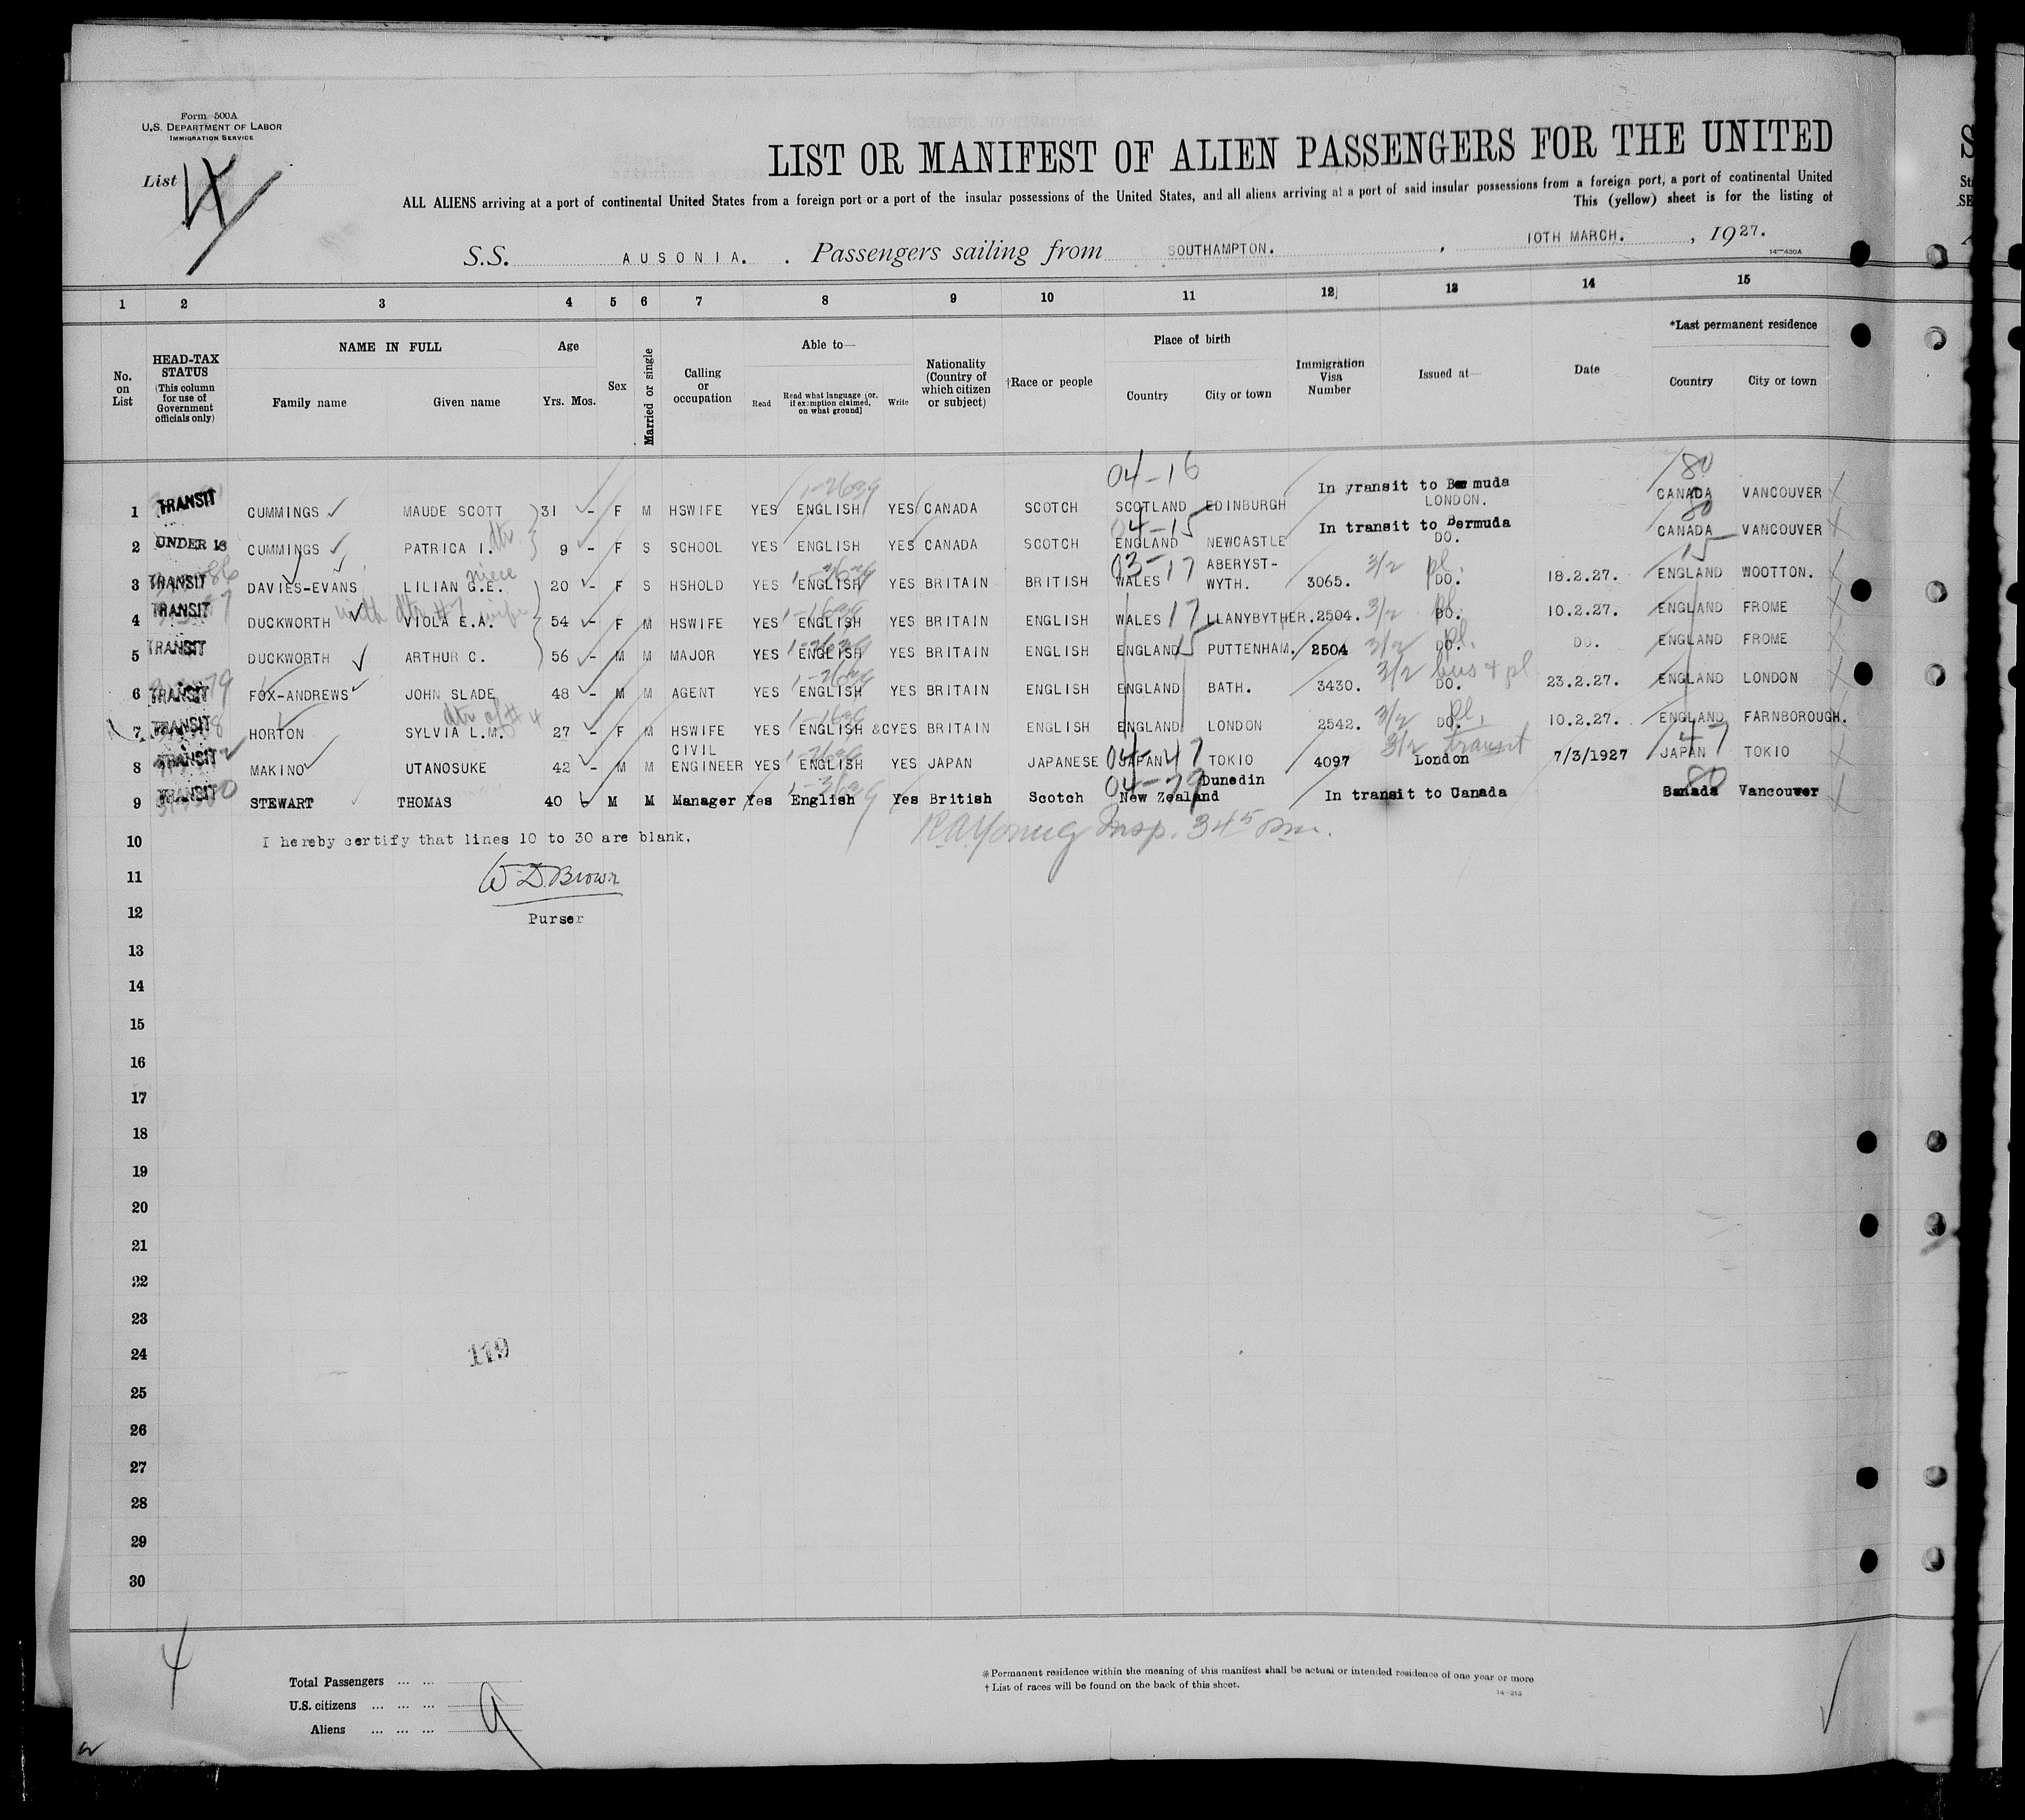 Form 500A
U.S. DEPARTMENT OF LABOR
IMMIGRATION SERVICE
List 4
LIST OR MANIFEST OF ALIEN PASSENGERS FOR THE UNITED
ALL ALIENS arriving at a port of continental United States from a foreign port or a port of the insular possessions of the United States, and all aliens arriving at a port of said insular possessions from a foreign port, a port of continental United
This (yellow) sheet is for the listing of
S.S. AUSONIA. Passengers sailing from SOUTHAMPTON. , 10TH MARCH. , 1927.
14-430A
1 2 3 4 5 6 7 8 9 10 11 12 13 14 15
No. on List
HEAD-TAX STATUS (This column for use of Government officials only)
NAME IN FULL
Family name Given name
Age
Yrs. Mos.
Sex
Married or single
Calling or occupation
Able to—
Read
Read what language [or, if exemption claimed, on what ground]
Write
Nationality (Country of which citizen or subject)
†Race or people
Place of birth
Country City or town
Immigration Visa Number
Issued at—
Date
*Last permanent residence
Country City or town
04-16 80
1 TRANSIT CUMMINGS MAUDE SCOTT 31 - F M HSWIFE YES ENGLISH YES CANADA SCOTCH SCOTLAND EDINBURGH In yransit to Bermuda LONDON. CANADA VANCOUVER
04-15 80
2 UNDER 16 CUMMINGS PATRICA I. dtr 9 - F S SCHOOL YES ENGLISH YES CANADA SCOTCH ENGLAND NEWCASTLE In transit to Bermuda DO. CANADA VANCOUVER
03-17 15
3 TRANSIT DAVIES-EVANS LILIAN G.E. niece 20 - F S HSHOLD YES ENGLISH YES BRITAIN BRITISH WALES ABERYST-WYTH. 3065. 3/2 pl. DO. 18.2.27. ENGLAND WOOTTON.
4 TRANSIT DUCKWORTH with dtr #7 VIOLA E.A. wife 54 - F M HSWIFE YES ENGLISH YES BRITAIN ENGLISH WALES 17 LLANYBYTHER. 2504. 3/2 pl. DO. 10.2.27. ENGLAND FROME
5 TRANSIT DUCKWORTH ARTHUR C. 56 - M M MAJOR YES ENGLISH YES BRITAIN ENGLISH ENGLAND 15 PUTTENHAM. 2504 3/2 pl. DO. DO. ENGLAND FROME
6 TRANSIT FOX-ANDREWS JOHN SLADE 48 - M M AGENT YES ENGLISH YES BRITAIN ENGLISH ENGLAND BATH. 3430. 3/2 bus + pl DO. 23.2.27. ENGLAND LONDON
7 TRANSIT HORTON SYLVIA L.M. dtr of #4 27 - F M HSWIFE YES ENGLISH &C YES BRITAIN ENGLISH ENGLAND LONDON 2542. 3/2 pl. DO. 10.2.27. ENGLAND FARNBOROUGH.
8 TRANSIT MAKINO UTANOSUKE 42 - M M CIVIL ENGINEER YES ENGLISH YES JAPAN JAPANESE 04-47 JAPAN TOKIO 4097 3/2 transit London 7/3/1927 47 JAPAN TOKIO
9 TRANSIT STEWART THOMAS 40 M M Manager Yes English Yes British Scotch 04-79 New Zealand Dunedin In transit to Canada 80 Banada Vancouver
10 I hereby certify that lines 10 to 30 are blank. Insp. 3 45 pm.
11 W D. Brown
12 Purser
13
14
15
16
17
18
19
20
21
22
23
24 119
25
26
27
28
29
30
4
Total Passengers ... ...
U.S. citizens ... ... ...
Aliens ... ... ... 9
*Permanent residence within the meaning of this manifest shall be actual or intended residence of one year or more
†List of races will be found on the back of this sheet.
14-213